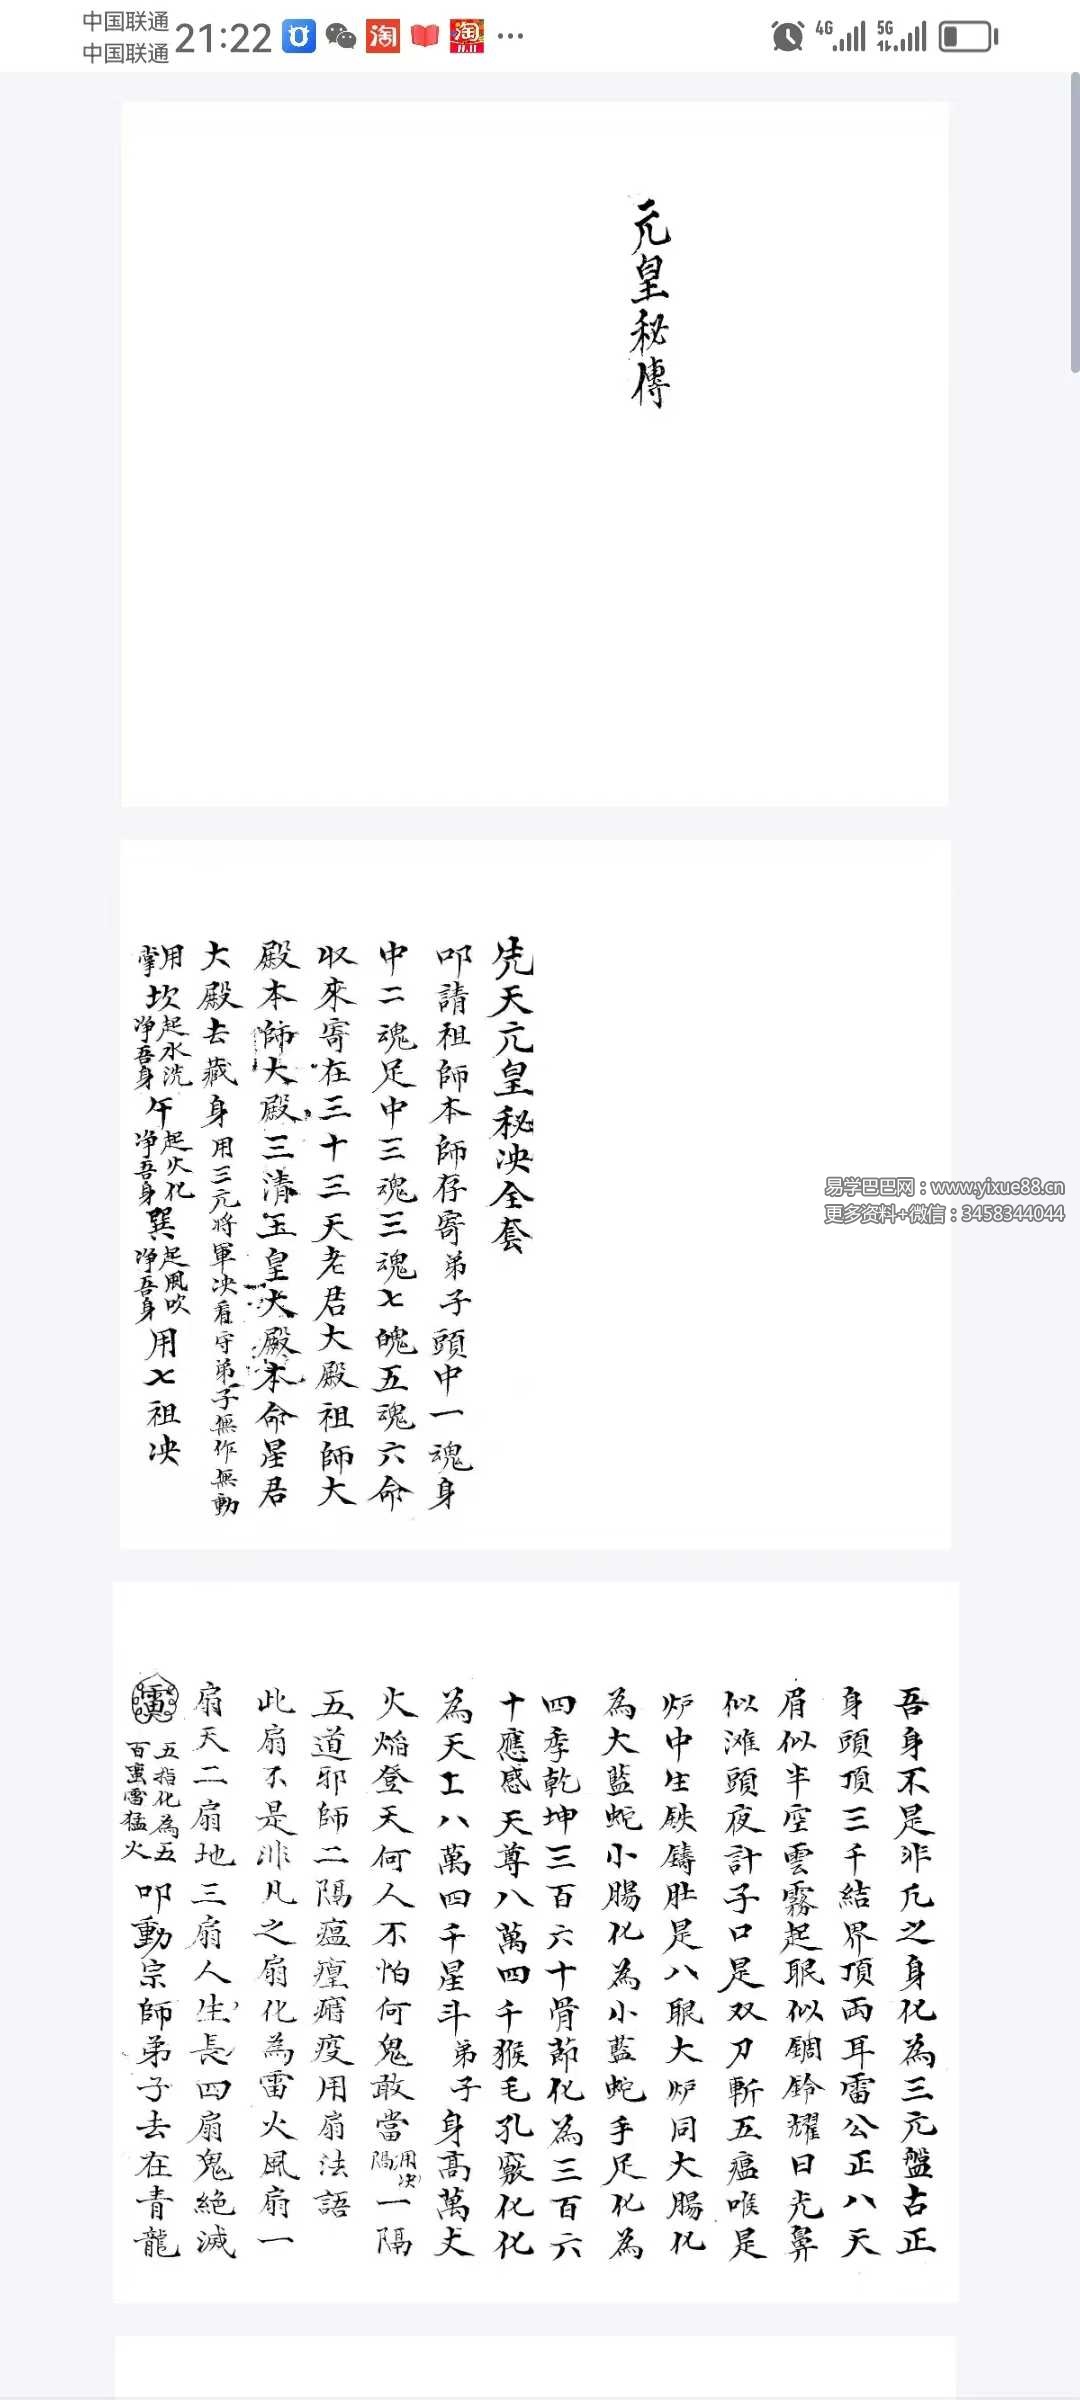 中国联通
中国联通
21:22
淘
淘
11.11
4G
5G
元皇秘傳
先天元皇秘决全套
叩請祖師本師存寄弟子頭中一魂身
中二魂足中三魂三魂七魄五魂六命
收來寄在三十三天老君大殿祖師大
殿本師大殿三清玉皇大殿本命星君
大殿去藏身用三元将軍决看守弟子無作無動
用掌坎起水洗净吾身午起火化净吾身巽起風吹净吾身用七祖决
易学巴巴网：www.yixue88.cn
更多资料+微信：3458344044
吾身不是非凡之身化為三元盤古正
身頭頂三千結界頂両耳雷公正八天
眉似半空雲霧起眼似銅鈴耀日光鼻
似滩頭夜計子口是双刀斬五瘟喉是
炉中生鉄鑄肚是八眼大炉同大腸化
為大藍蛇小腸化為小藍蛇手足化為
四季乾坤三百六十骨節化為三百六
十應感天尊八萬四千猴毛孔竅化化
為天上八萬四千星斗弟子身高萬丈
火焰登天何人不怕何鬼敢當用决隔一隔
五道邪師二隔瘟瘟癀疫用扇法語
此扇不是非凡之扇化為雷火風扇一
扇天二扇地三扇人生長四扇鬼絕滅
五指化為五百蛮雷猛火叩動宗師弟子去在青龍